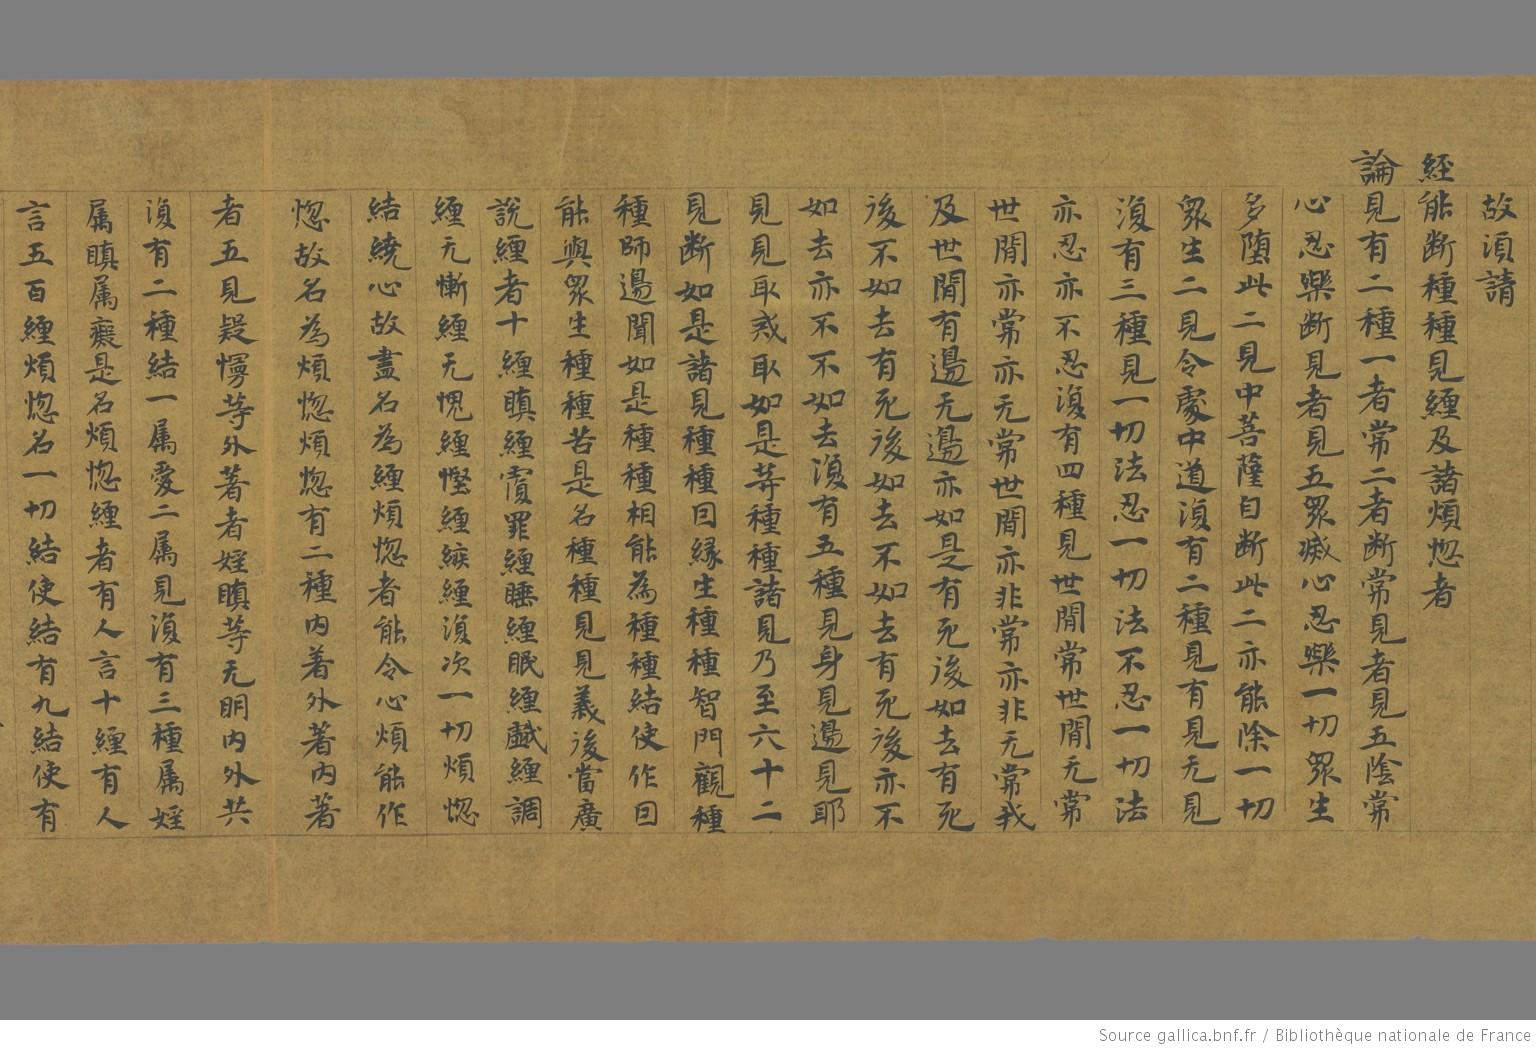 故須請
經能断種種見纏及諸煩惚者
論見有二種一者常二者断常見者見五陰常
心忍樂断見者見五眾滅心忍樂一切眾生
多墮此二見中菩薩自断此二亦能除一切
眾生二見令處中道復有二種見有見无見
復有三種見一切法忍一切法不忍一切法
亦忍亦不忍復有四種見世閒常世閒无常
世閒亦常亦无常世閒亦非常亦非无常我
及世閒有邊无邊亦如是有死後如去有死
後不如去有死後如去不如去有死後亦不
如去亦不不如去復有五種見身見邊見耶
見見取戒取如是等種種諸見乃至六十二
見断如是諸見種種因緣生種種智門觀種
種師邊聞如是種種相能為種種結使作因
能與眾生種種苦是名種種見見義後當廣
說纏者十纏瞋纏覆罪纏睡纏眠纏戲纏調
纏无慚纏无愧纏慳纏嫉纏復次一切煩惚
結繞心故盡名為纏煩惚者能令心煩能作
惚故名為煩惚煩惚有二種內著外著內著
者五見疑慢等外著者婬瞋等无明內外共
復有二種結一属愛二属見復有三種属婬
属瞋属癡是名煩惚纏者有人言十纏有人
言五百纏煩惚名一切結使結有九結使有
Source gallica.bnf.fr / Bibliothèque nationale de France